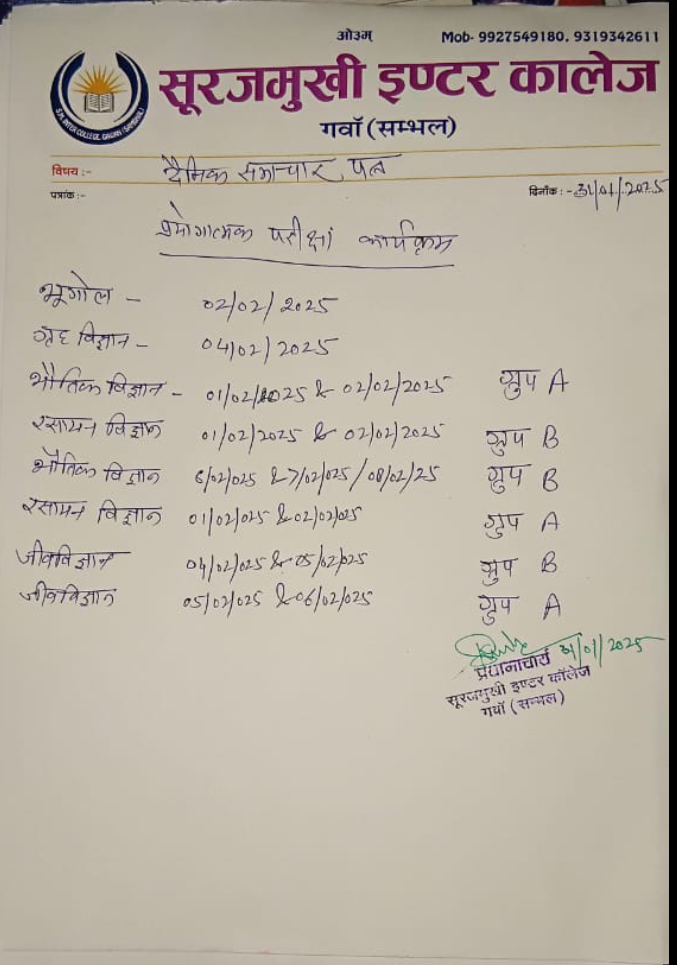 ओ३म्
Mob- 9927549180, 9319342611
सूरजमुखी इण्टर कालेज
S.M. INTER COLLEGE, GAWAN (SAMBHAL)
गवॉ (सम्भल)
विषय :- दैनिक समाचार पत्र
पत्रांक :- दिनाँक : - 31/01/2025
प्रयोगात्मक परीक्षा कार्यक्रम
भूगोल - 02/02/2025
गृह विज्ञान - 04/02/2025
भौतिक विज्ञान - 01/02/2025 & 02/02/2025 ग्रुप A
रसायन विज्ञान 01/02/2025 & 02/02/2025 ग्रुप B
भौतिक विज्ञान 6/02/025 & 7/02/025/08/02/25 ग्रुप B
रसायन विज्ञान 01/02/025 & 02/02/025 ग्रुप A
जीवविज्ञान 04/02/025 & 05/02/025 ग्रुप B
जीवविज्ञान 05/02/025 & 06/02/025 ग्रुप A
31/01/2025
प्रधानाचार्य
सूरजमुखी इण्टर कॉलेज
गवॉ (सम्भल)